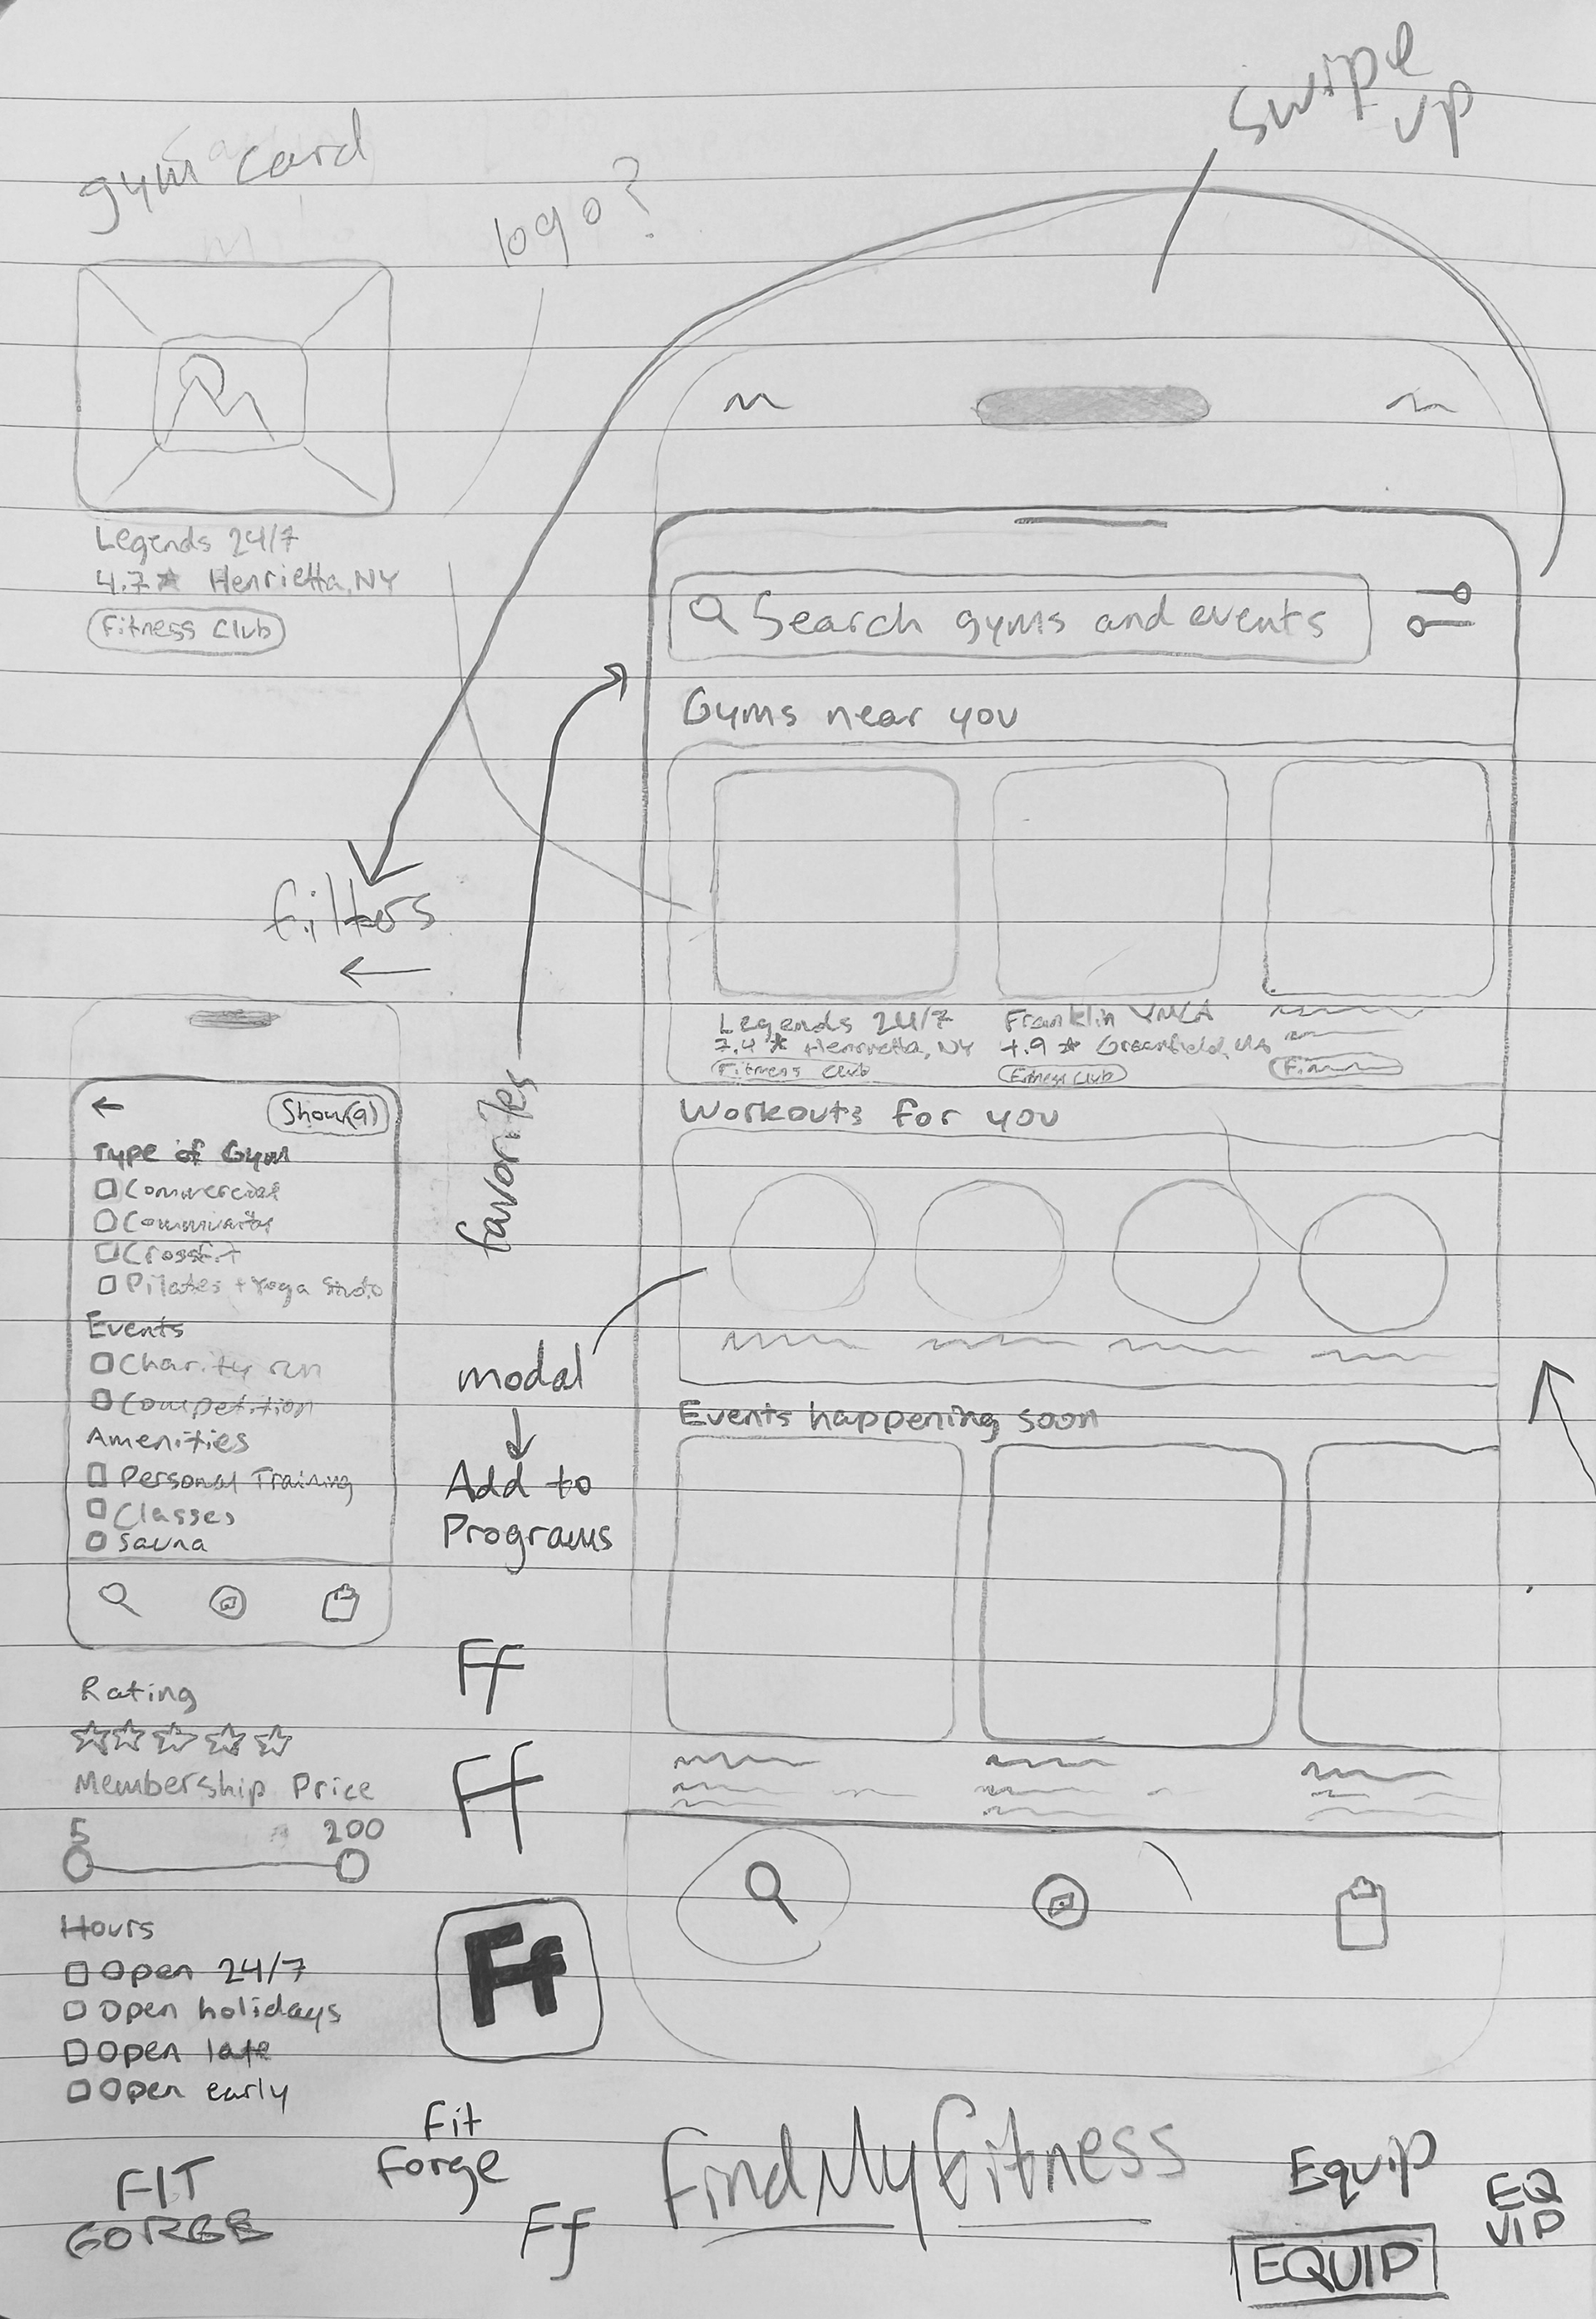 Swipe
up
gym card
logo?
Legends 24/7
4.7★ Henrietta, NY
Fitness Club
Search gyms and events
Gyms near you
filters
Legends 24/7
7.4★ Henrietta, NY
Fitness Club
Franklin YMCA
4.9★ Greenfield, MA
Fitness Club
favorites
Show(9)
Type of Gym
Commercial
Community
Crossfit
Pilates + Yoga Studio
Events
Charity run
Competition
Amenities
Personal Training
Classes
Sauna
Workouts for you
modal
Add to
Programs
Events happening soon
Ff
Ff
Ff
Rating
Membership Price
5 200
Hours
Open 24/7
Open holidays
Open late
Open early
FIT
FORGE
Fit
Forge
Ff
FindMyFitness
Equip
EQUIP
EQ
VIP